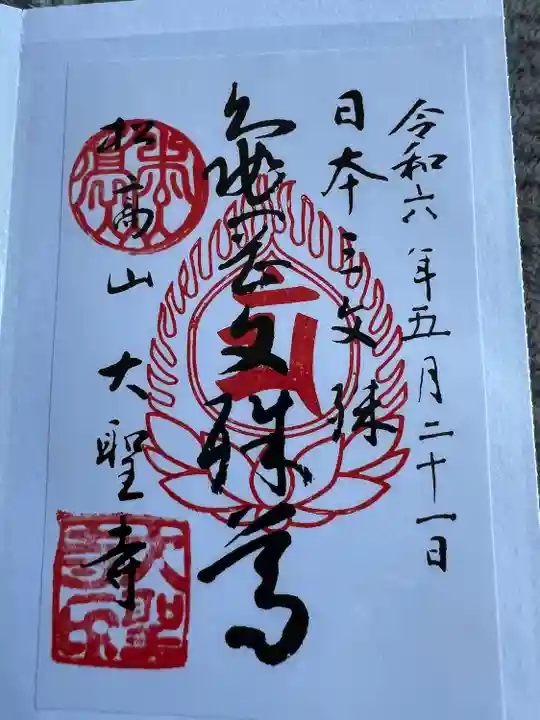 令和六年五月二十一日
日本三文殊
亀岡文殊尊
松高山大聖寺